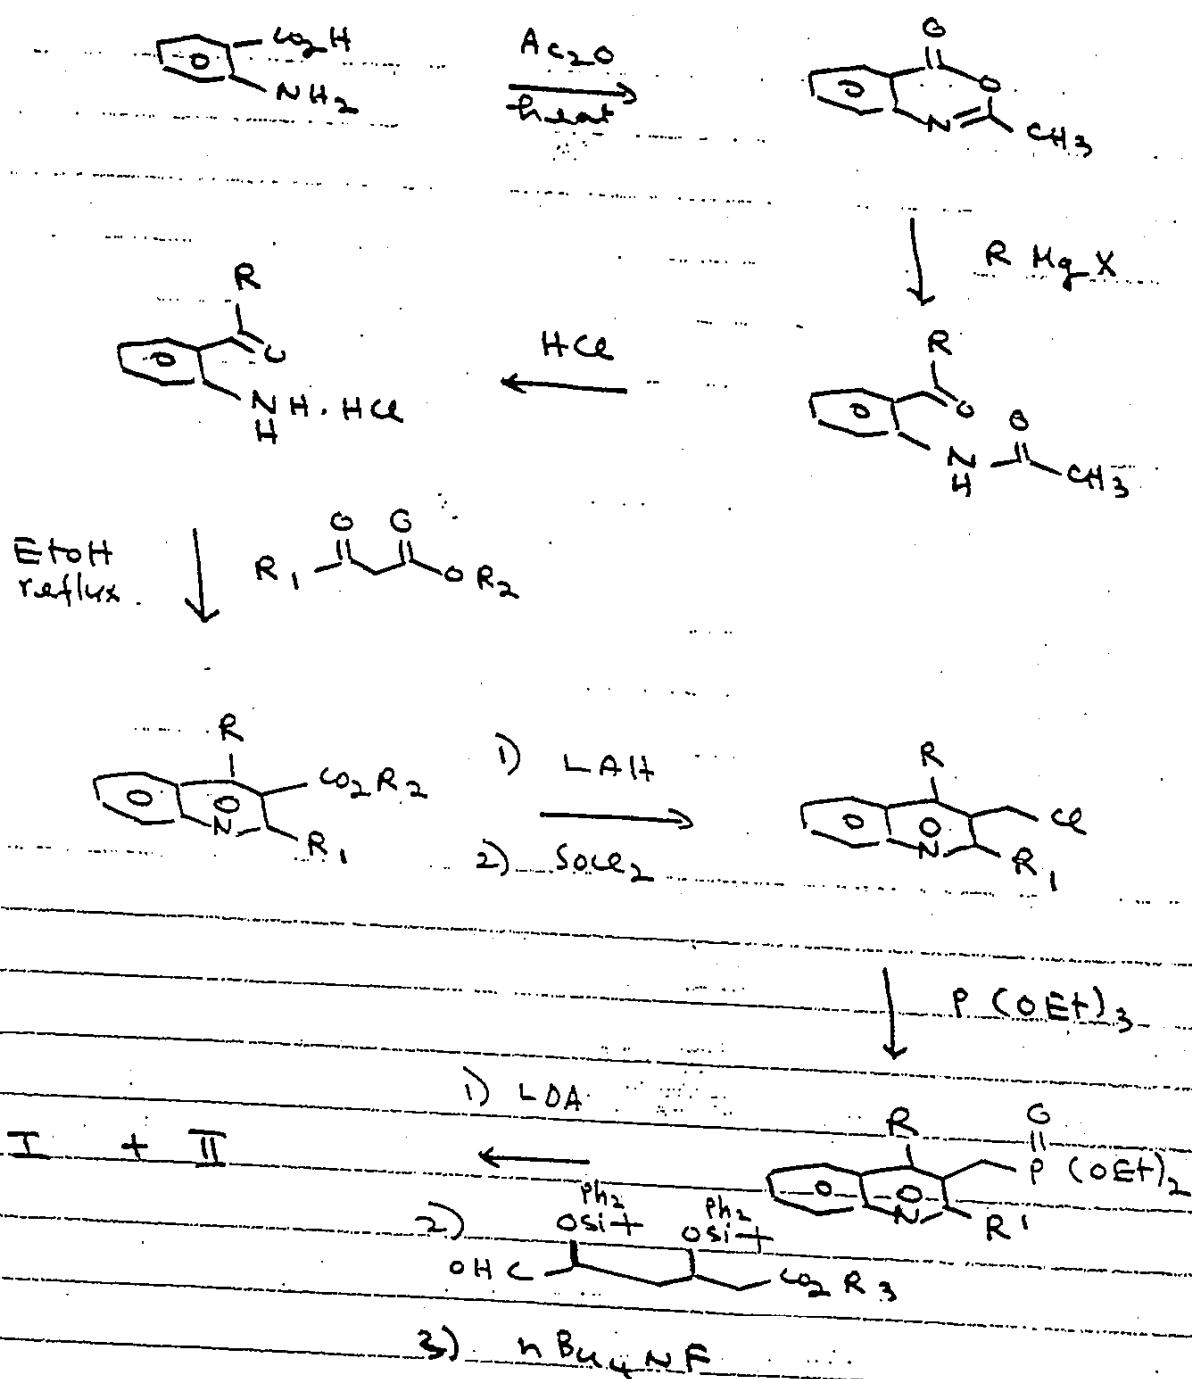 CO2H
NH2
Ac2O
heat
O
O
N
CH3
R Mg X
R
O
NH.HCl
H
HCl
R
O
O
N
H
CH3
EtOH
reflux.
O O
R1
OR2
R
CO2R2
N
R1
1) LAH
2) SOCl2
R
Cl
N
R1
P(OEt)3
1) LDA
I + II
2)
Ph2
OSi
Ph2
OSi
OHC
CO2R3
3) nBu4NF
R
O
P(OEt)2
N
R'